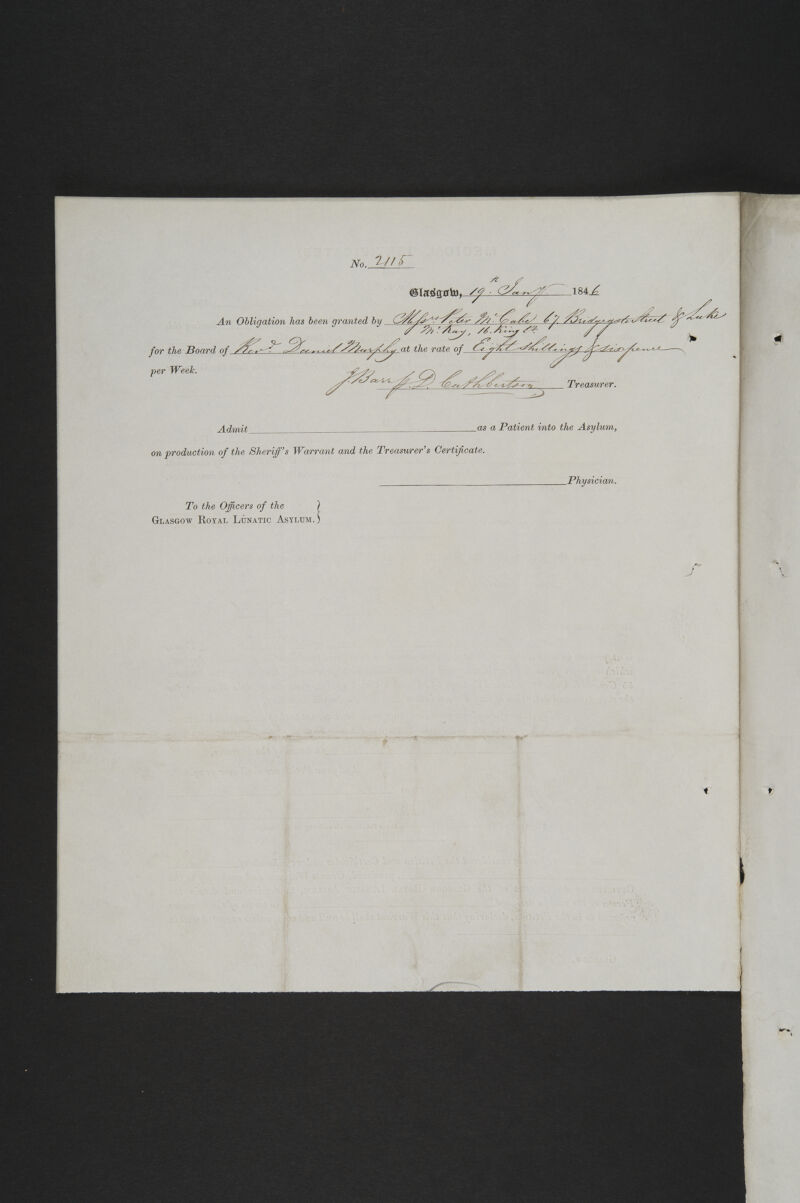 No. 2115
Glasgow, 19th Jany 1846
An Obligation has been granted by Messrs Peter McCabe 67 Bridgegate Street & Luke
McKay, 16 King St.
for the Board of Revd. Daniel Murphy at the rate of Eight Shillings & Sixpence
per Week.
J Barr D. Cuthbertson Treasurer.
Admit as a Patient into the Asylum,
on production of the Sheriff's Warrant and the Treasurer's Certificate.
Physician.
To the Officers of the
Glasgow Royal Lunatic Asylum.